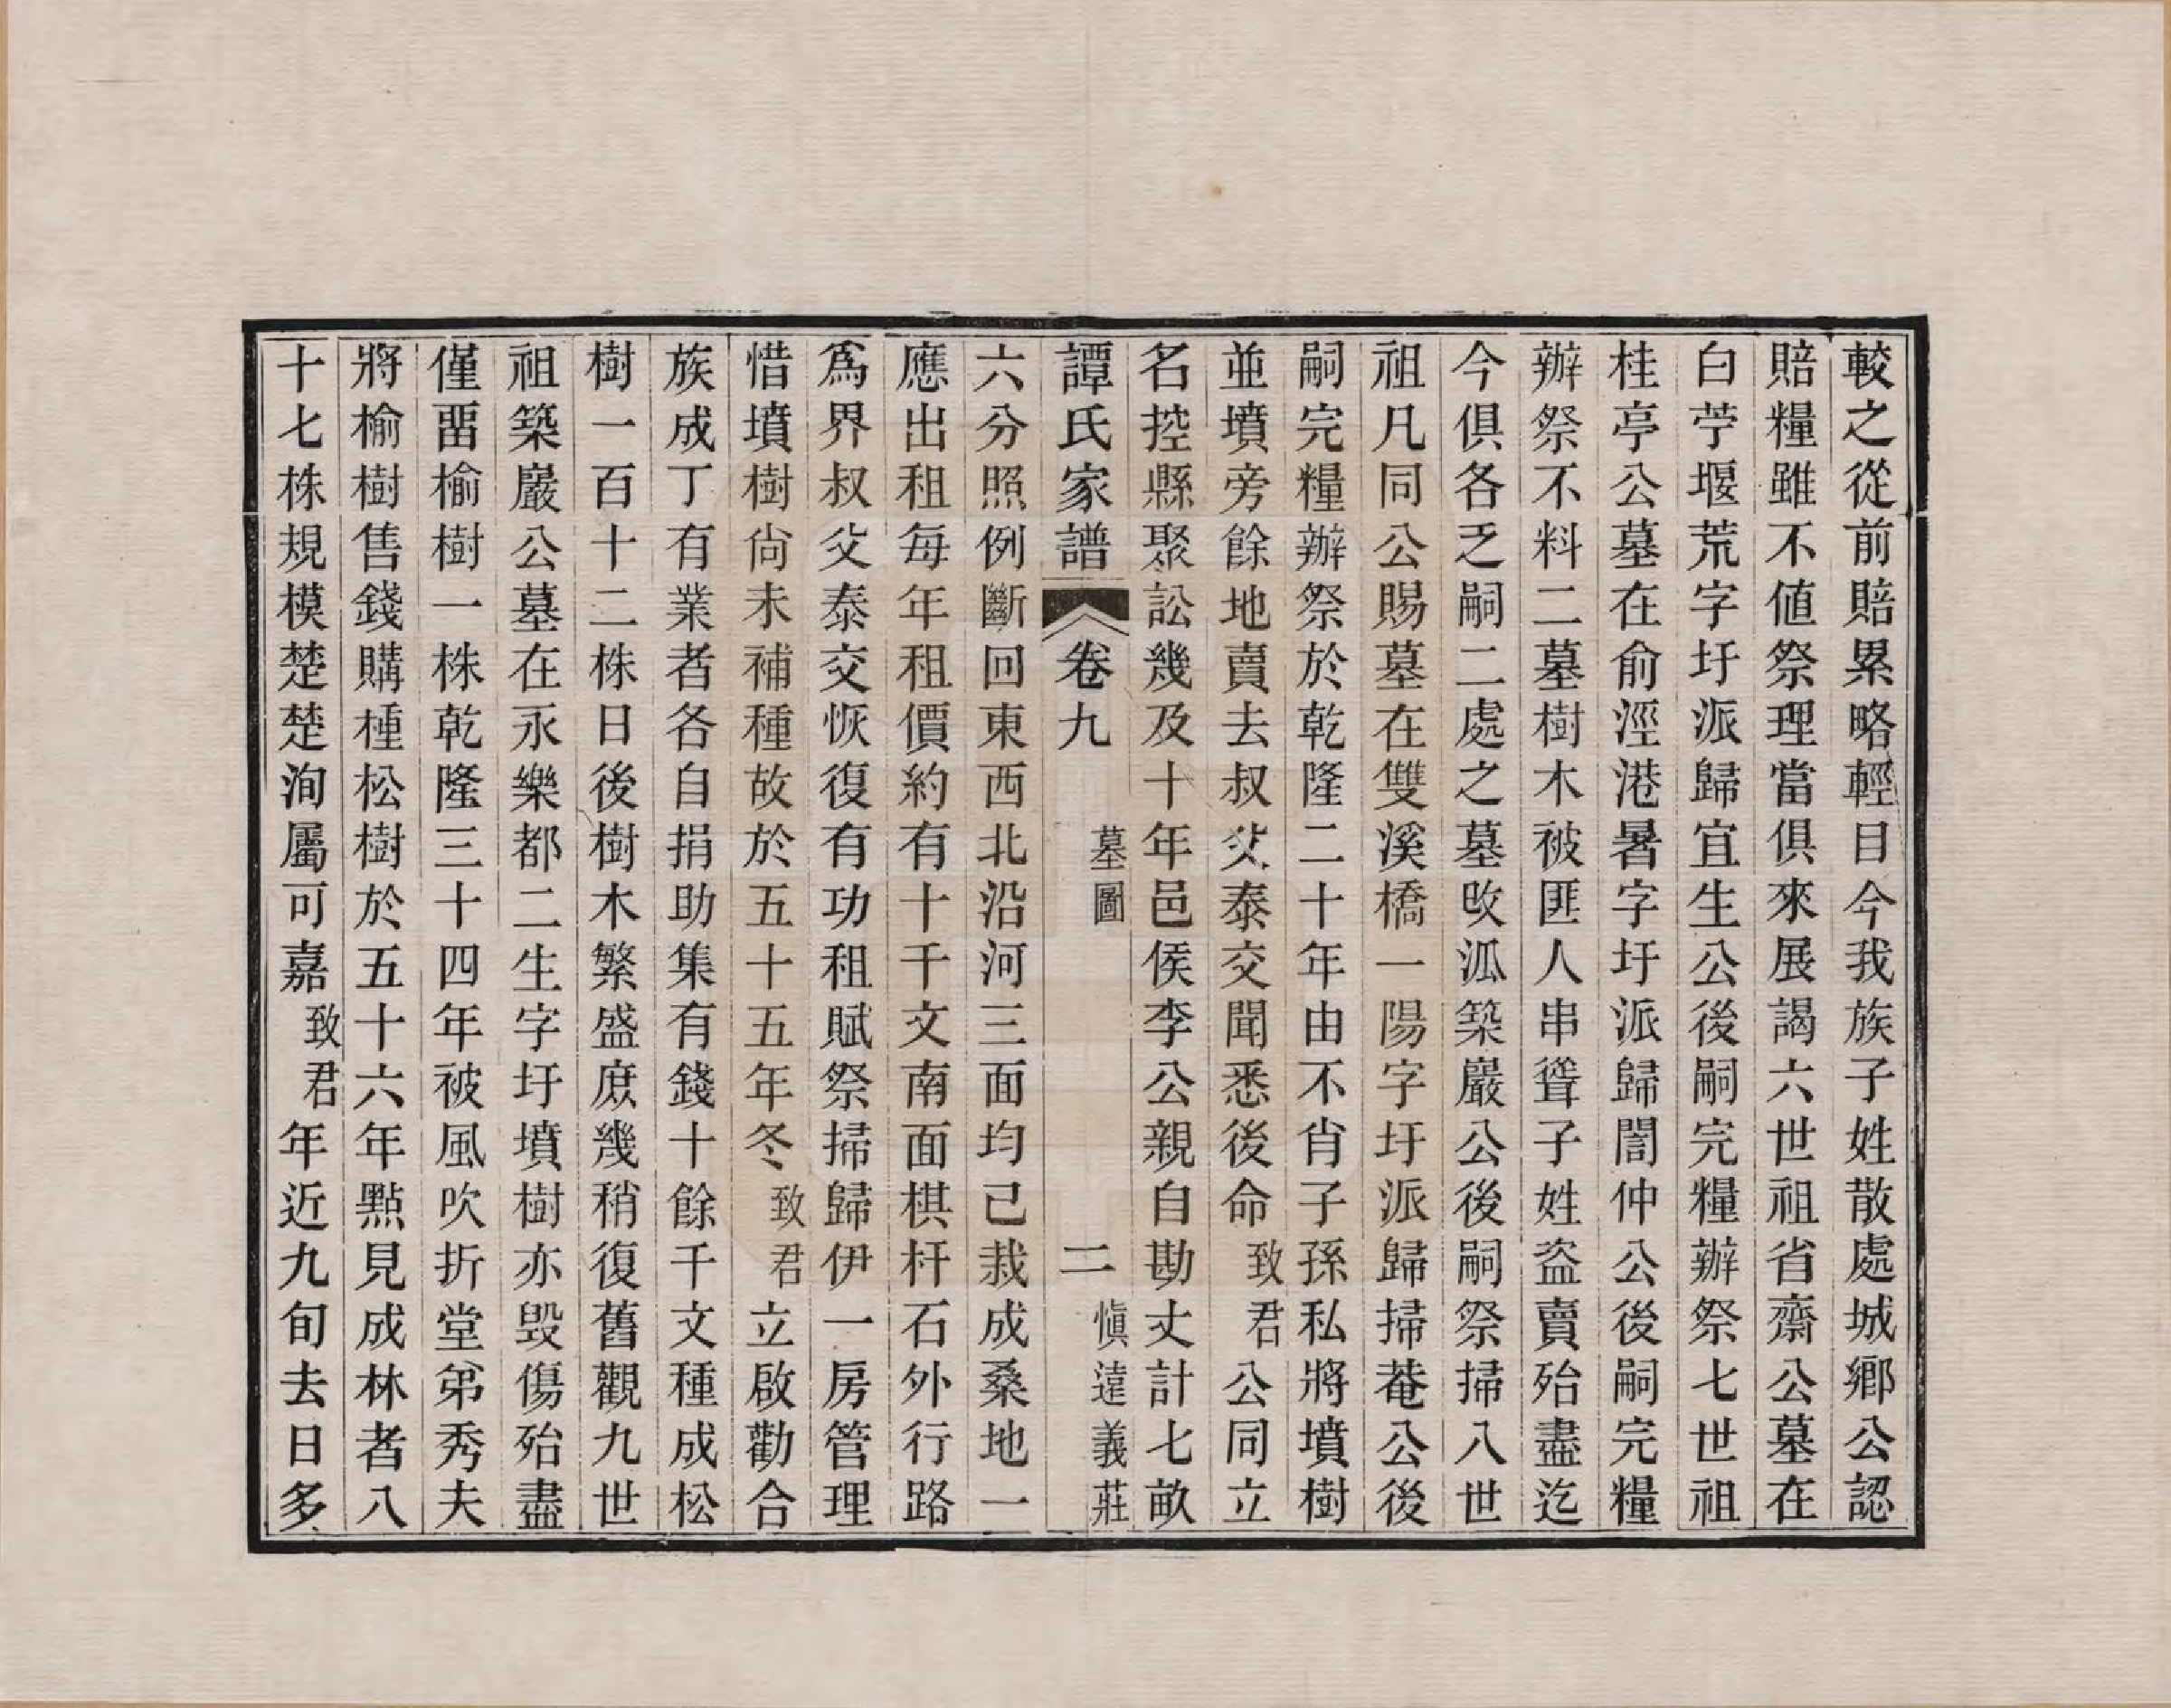 較之從前賠累略輕目今我族子姓散處城鄉公認
賠糧雖不値祭理當俱來展謁六世祖省齋公墓在
白苧堰荒字圩派歸宜生公後嗣完糧辦祭七世祖
桂亭公墓在俞涇港暑字圩派歸誾仲公後嗣完糧
辦祭不料二墓樹木被匪人串聳子姓盜賣殆盡迄
今俱各乏嗣二處之墓攺泒築巖公後嗣祭掃八世
祖凡同公賜墓在雙溪橋一陽字圩派歸掃菴公後
嗣完糧辦祭於乾隆二十年由不肖子孫私將墳樹
並墳旁餘地賣去叔父泰交聞悉後命致君公同立
名控縣聚訟幾及十年邑侯李公親自勘丈計七畝
譚氏家譜 卷九 墓圖 二 愼遠義莊
六分照例斷回東西北沿河三面均已栽成桑地一
應出租每年租價約有十千文南面棋杆石外行路
爲界叔父泰交恢復有功租賦祭掃歸伊一房管理
惜墳樹尙未補種故於五十五年冬致君立啟勸合
族成丁有業者各自捐助集有錢十餘千文種成松
樹一百十二株日後樹木繁盛庶幾稍復舊觀九世
祖築巖公墓在永樂都二生字圩墳樹亦毀傷殆盡
僅畱榆樹一株乾隆三十四年被風吹折堂弟秀夫
將榆樹售錢購種松樹於五十六年點見成林者八
十七株規模楚楚洵屬可嘉致君年近九旬去日多